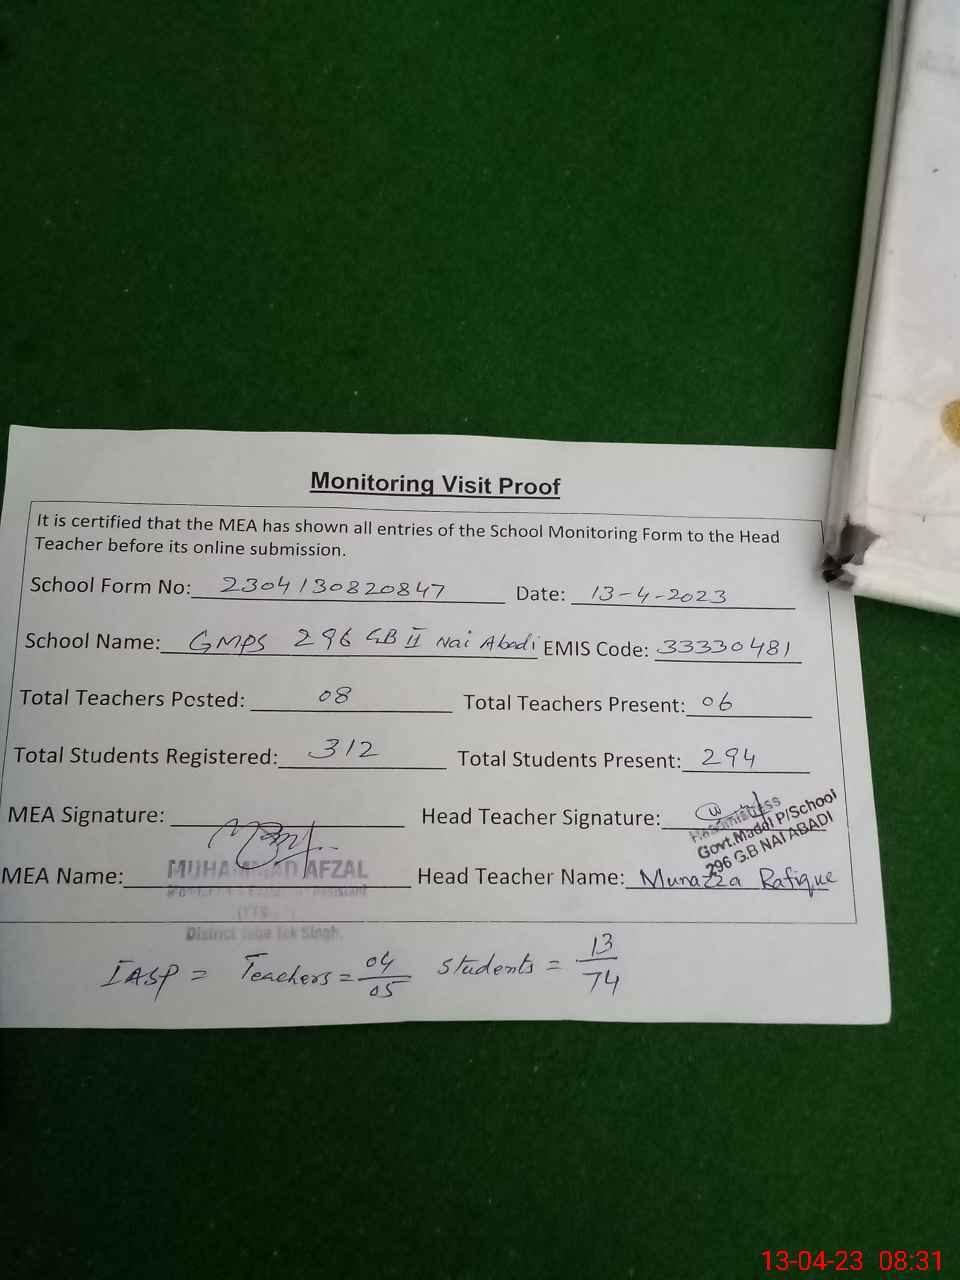 Monitoring Visit Proof
It is certified that the MEA has shown all entries of the School Monitoring Form to the Head
Teacher before its online submission.
School Form No: 2304130820847 Date: 13-4-2023
School Name: GMPS 296 GB II Nai Abadi EMIS Code: 33330481
Total Teachers Posted: 08 Total Teachers Present: 06
Total Students Registered: 312 Total Students Present: 294
MEA Signature: Head Teacher Signature:
Headmistress
Govt.Maddl P/School
296 G.B NAI ABADI
MEA Name: MUHAMMAD AFZAL Head Teacher Name: Munazza Rafique
Assistant
District Toba Tek Singh.
IASP = Teachers = 04/05 Students = 13/74
13-04-23 08:31